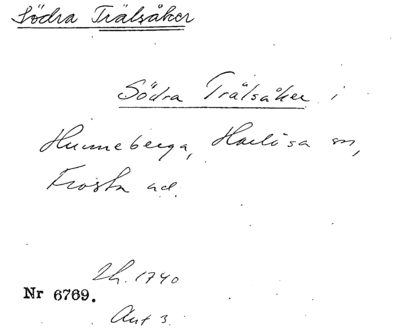 Södra Trälsåker
Södra Trälsåker i
Hunneberga, Harlösa sn,
Frosta hd.
Lh. 1740
Nr 6769.
Akt 3.